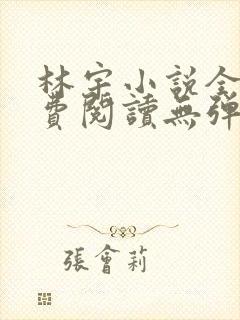 林宇小説全
費閱讀無彈
張會莉